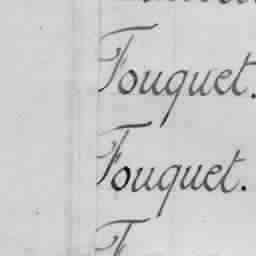 Fouquet.
Fouquet.